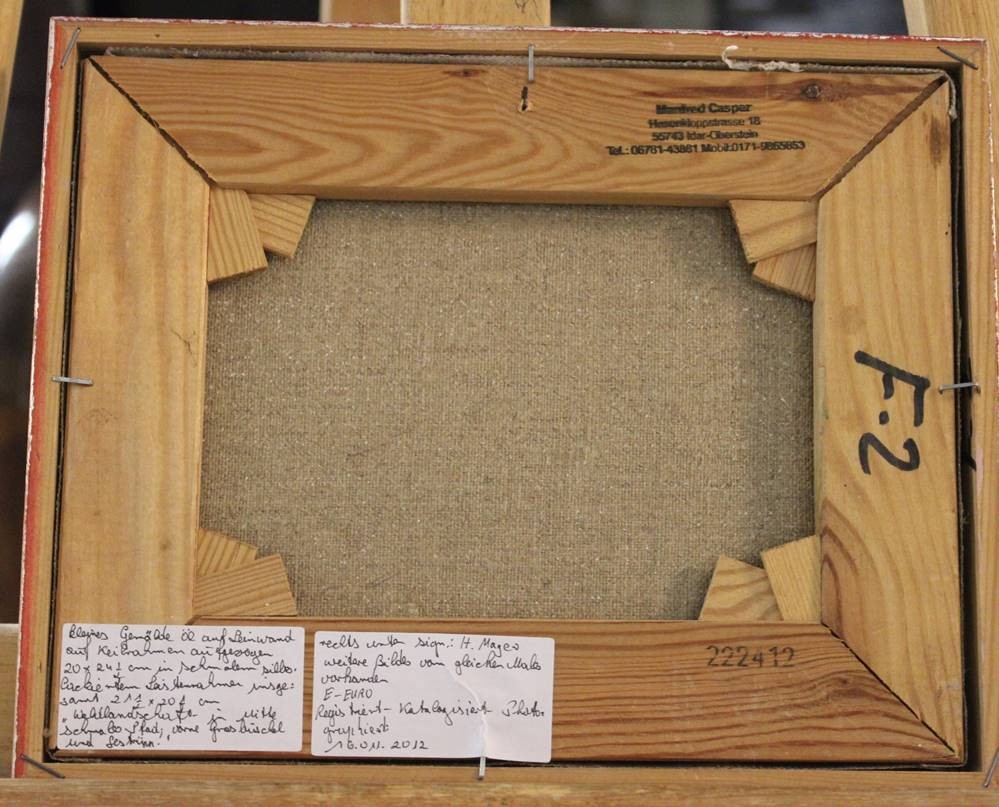 Manfred Casper
Hasenkloppstrasse 18
55743 Idar-Oberstein
Tel.: 06781-43881 Mobil:0171-9865853
F.2
Kleines Gemälde öl auf Leinwand
auf Keilrahmen aufgezogen
20 x 24 ½ cm in schmalem silber
lackiertem Leistenrahmen insge=
samt
cm
"Waldlandschaft in Mitte
schmaler Pfad, vorne Grasbüschel
und
rechts unten sign.: H. Mayer
weitere Bilder vom gleichen Maler
vorhanden
E-EURO
Registriert- Katalogisiert- Photo-
graphiert
16.011.2012
222412